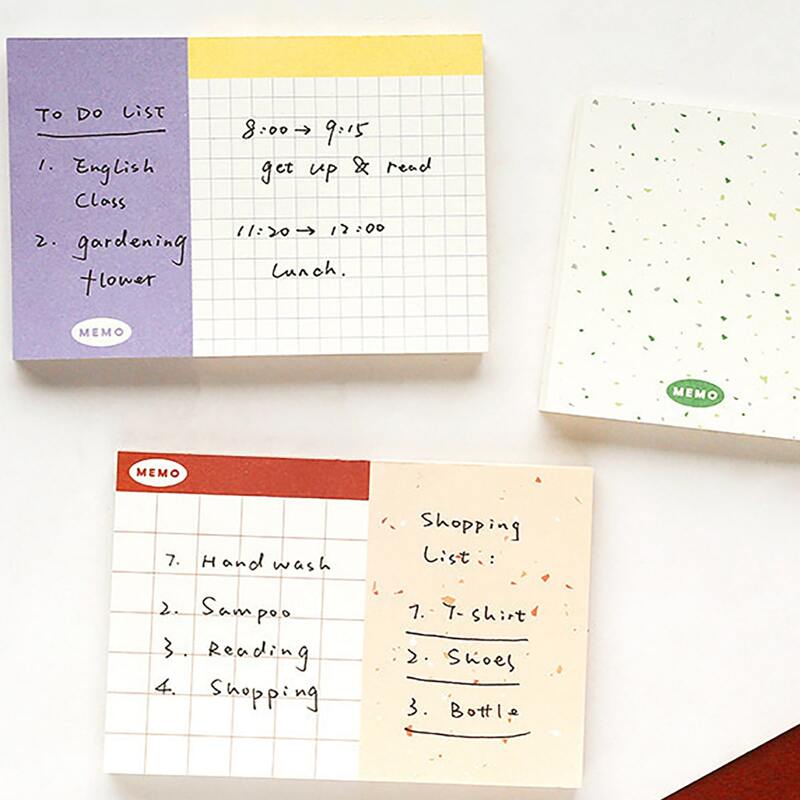 TO DO LIST
1. English
Class
2. gardening
flower
MEMO
8:00→ 9:15
get up & read
11:20→ 12:00
Lunch.
MEMO
MEMO
7. Hand wash
2. Sampoo
3. Reading
4. Shopping
Shopping
List :
7. T-shirt
2. Shoes
3. Bottle